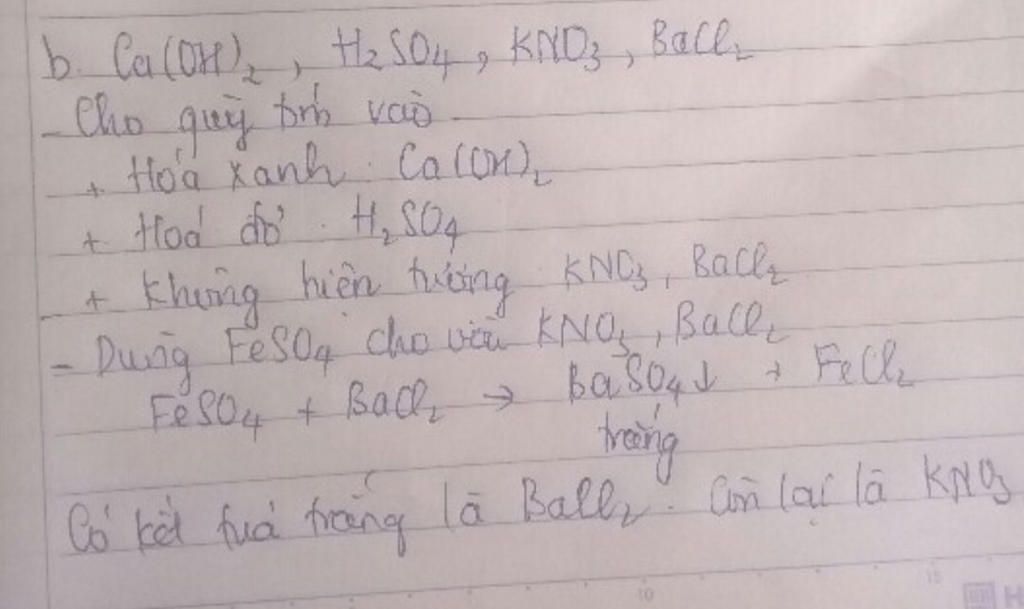 b. Ca(OH)₂, H₂SO₄, KNO₃, BaCl₂
- Cho quỳ tím vào
+ Hóa xanh: Ca(OH)₂
+ Hoá đỏ: H₂SO₄
+ Không hiện tượng KNO₃, BaCl₂
- Dùng FeSO₄ cho vào KNO₃, BaCl₂
FeSO₄ + BaCl₂ → BaSO₄↓ + FeCl₂
trắng
Có kết tủa trắng là BaCl₂. Còn lại là KNO₃
10 15